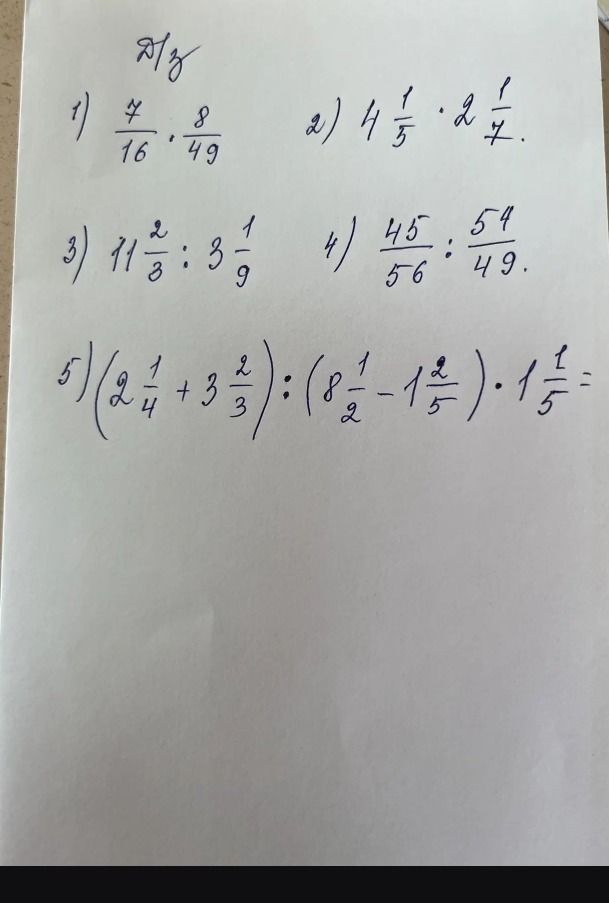 Д/з
1) 7/16 · 8/49 2) 4 1/5 · 2 1/7.
3) 11 2/3 : 3 1/9 4) 45/56 : 54/49.
5) (2 1/4 + 3 2/3) : (8 1/2 − 1 2/5) · 1 1/5 =